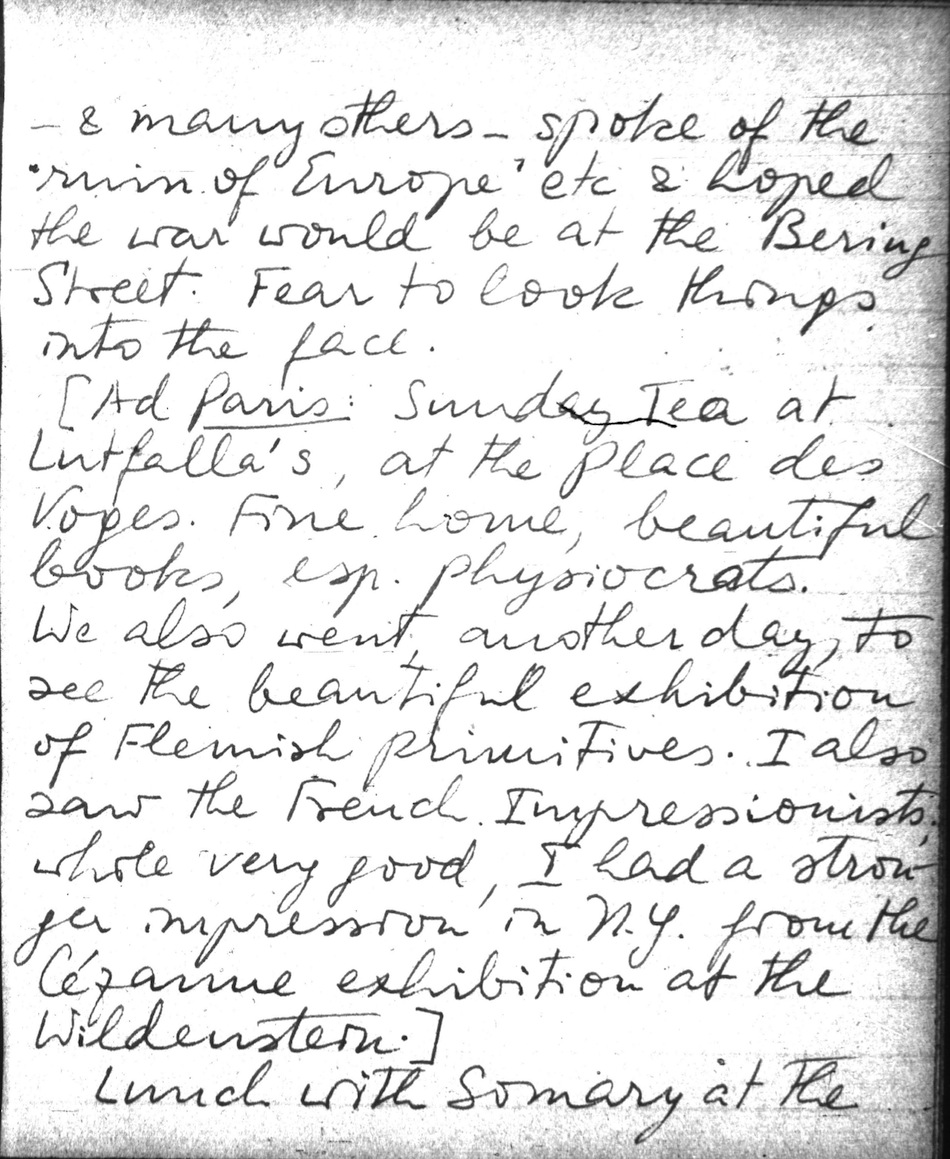 – & many others – spoke of the
'ruin of Europe' etc & hoped
the war would be at the Bering
Street. Fear to look things
into the face.
[Ad Paris: Sunday Tea at
Lutfalla's, at the Place des
Voges. Fine home, beautiful
books, esp. physiocrats.
We also went, another day, to
see the beautiful exhibition
of Flemish primitives. I also
saw the French Impressionists,
whole very good, I had a stron-
ger impression in N.Y. from the
Cézanne exhibition at the
Wildenstein.]
Lunch with Somary at the